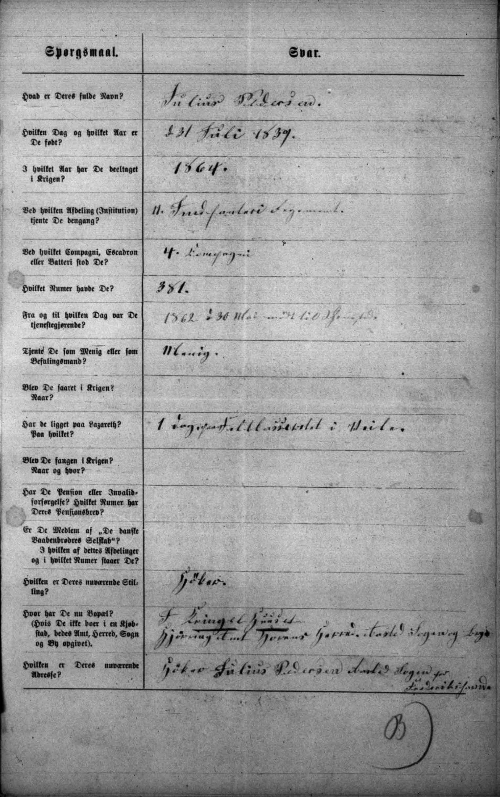 Spørgsmaal. Svar.
Hvad er Deres fulde Navn? Julius Pedersen.
Hvilken Dag og hvilket Aar er
De født? d 31 Juli 1839.
I hvilket Aar har De deeltaget
i Krigen? 1864.
Ved hvilken Afdeling (Institution)
tjente De dengang? 11. Infanteri Regiment.
Ved hvilket Compagni, Escadron
eller Batteri stod De? 4. Compagni
Hvilket Numer havde De? 381.
Fra og til hvilken Dag var De
tjenestegjørende? 1862 d 30 Mai til
Tjente De som Menig eller som
Befalingsmand? Menig.
Blev De saaret i Krigen?
Naar?
Har De ligget paa Lazareth?
Paa hvilket? 1 Dag paa Feltlasarettet i Veile.
Blev De fangen i Krigen?
Naar og hvor?
Har De Pension eller Invalid-
forsørgelse? Hvilket Numer har
Deres Pensionsbrev?
Er De Medlem af „De danske
Vaabenbrødres Selskab“?
I hvilken af dettes Afdelinger
og i hvilket Numer staaer De?
Hvilken er Deres nuværende Stil-
ling? Høker.
Hvor har De nu Bopæl?
(Hvis De ikke boer i en Kjøb-
stad, bedes Amt, Herred, Sogn
og By opgivet). I Kringel Huuset
Hjørring Amt Horens Herred Sogn og
Hvilken er Deres nuværende
Adresse? Høker Julius Pedersen Sogn pr
Frederikshavn
B